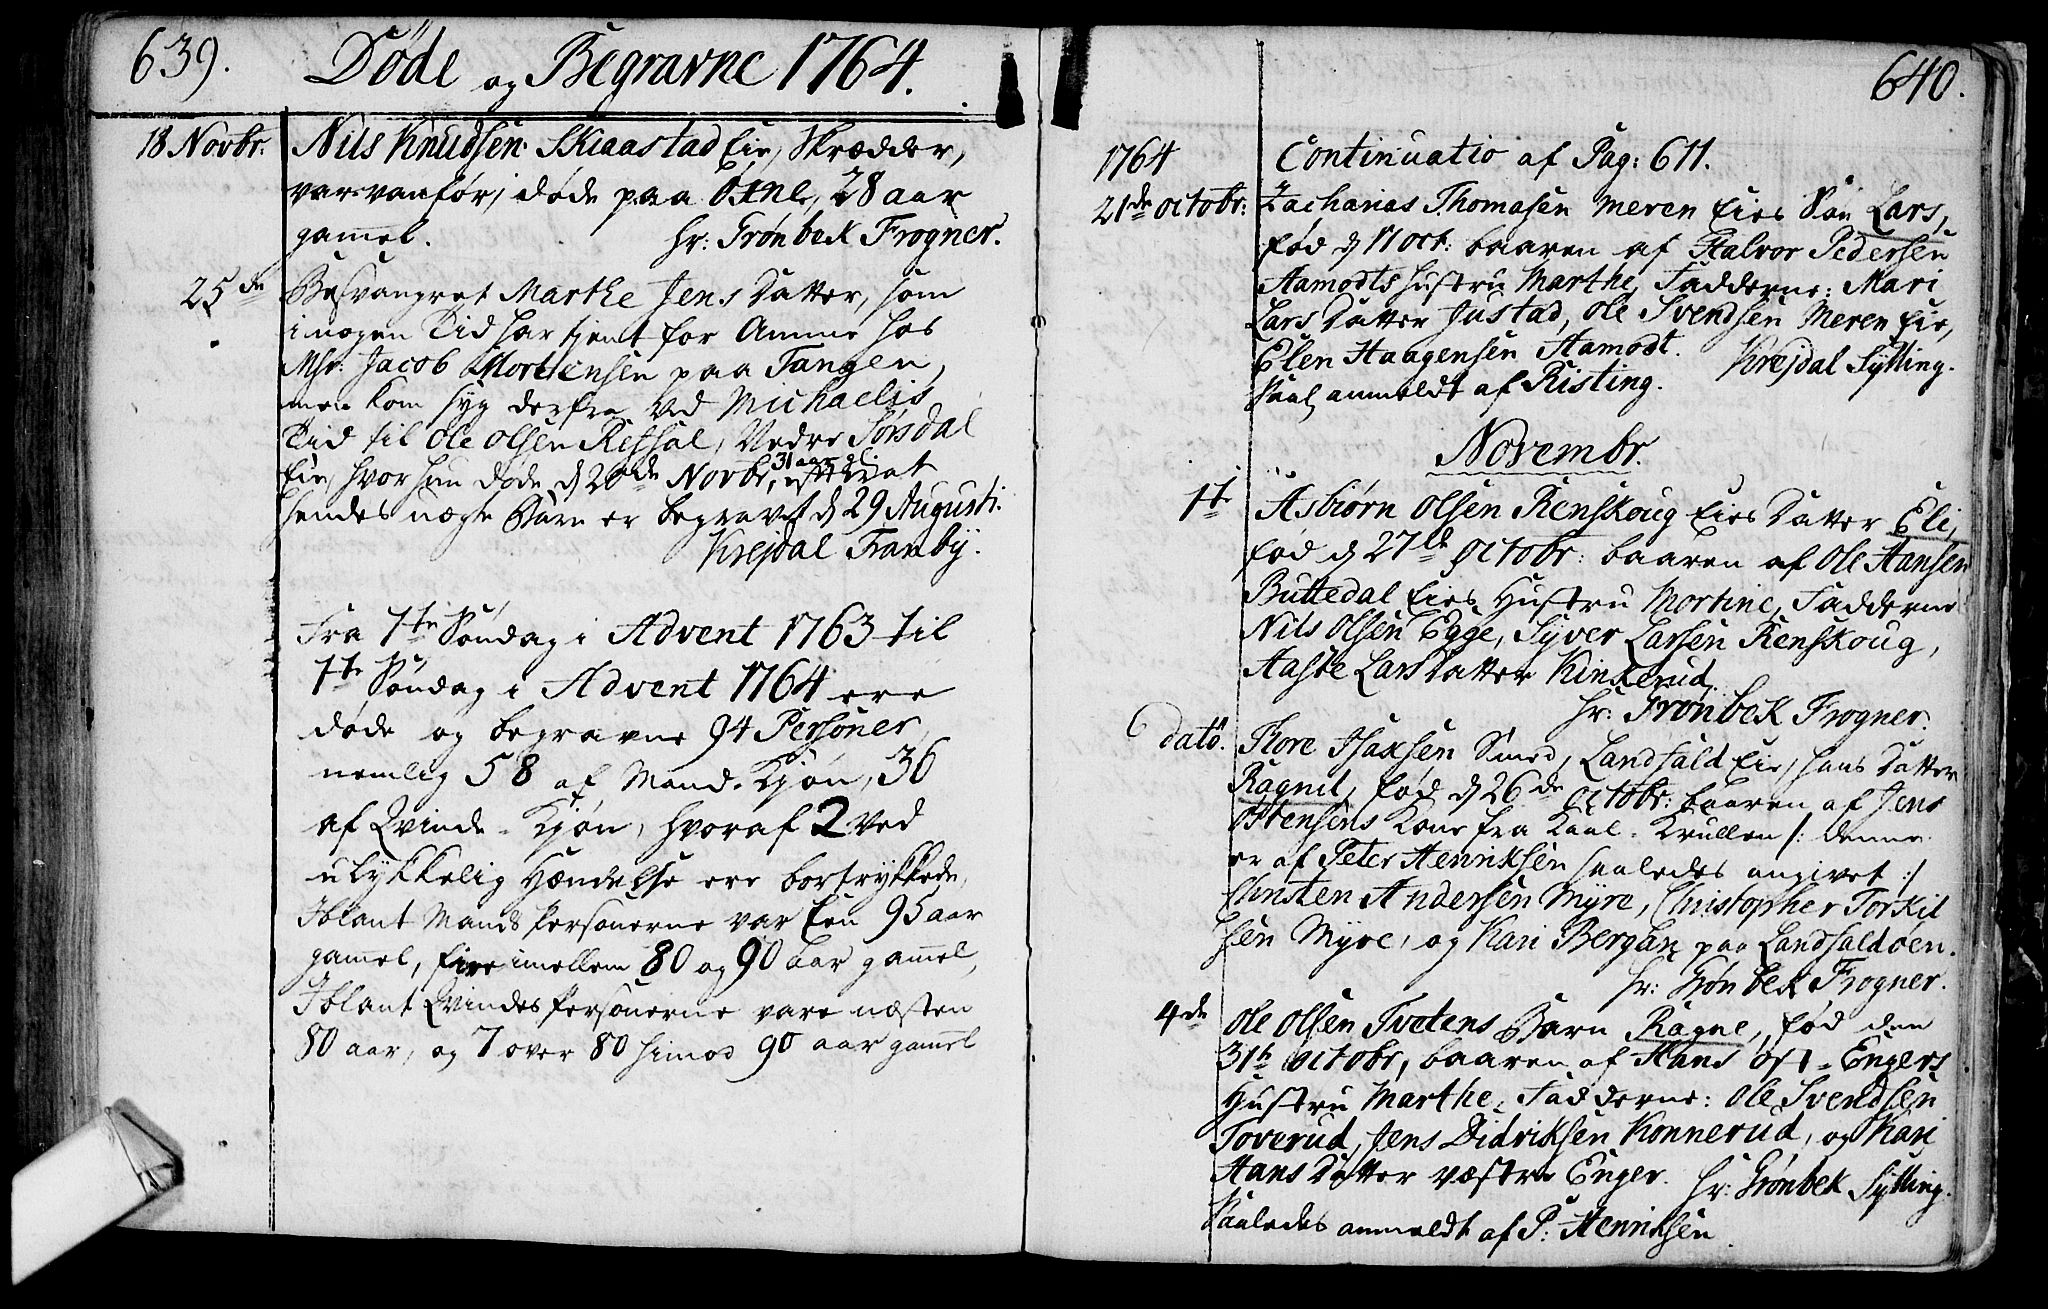 639.
Döde og Begravne 1764.
18 Novbr.
Nils Knudsen Skiaastad Eie, Skrædder,
var vanför, döde paa Öxne, 28 aar
gamel. Hr: Grönbek Frogner.
25de
Besvangret Marthe Jens Datter, som
i nogen Tid har tjent for Amme hos
Msr. Jacob Mortensen paa Tangen,
men kom syg derfra ved Michaelis
Tid til Ole Olsen Refsal, Nedre Sørsdal
Eie, hvor hun døde d 20de Novbr, 31 aar gl. efter at
hendes uægte Barn er begravet d 29 Augusti.
Krejdal Tranby.
Fra 1te Søndag i Advent 1763 til
1te Søndag i Advent 1764 ere
døde og begravne 94 Personer
nemlig 58 af Mand-Kjøn, 36
af Qvinde-Kjøn, hvoraf 2 ved
ulykkelig Hændelse ere bortrykkede,
Iblant Mands Personerne var Een 95 aar
gamel, fire imellem 80 og 90 aar gamel,
Iblant Qvindes Personerne vare næsten
80 aar, og 7 over 80 himod 90 aar gamel
640.
1764 Continuatio af Pag: 611.
21de Octobr:
Zacharias Thomasen Meren Eies Søn Lars,
fød d 17 Oct: baaren af Halvor Pedersen
Aamodts Hustru Marthe, Fadderne: Mari
Lars Datter Justad, Ole Svendsen Meren Eie,
Elen Haagensen Aamodt. Krejdal Sylling.
Saal anmeldt af Risting.
Novembr.
1te
Asbiørn Olsen Renskoug Eies Datter Eli,
fød d 27de Octobr: baaren af Ole Hansen
Buttedal Eies Hustru Mortine, Fadderne
Nils Olsen Egge, Syver Larsen Renskoug,
Aaste Lars Datter Kinserud.
Hr: Grönbek Frogner.
dato.
Thore Isaksen Smed, Landfald Eie, hans Datter
Ragnil, fød d 26de Octobr: baaren af Jens
Østensens Kone fra Kaal-Krullen /: denne
er af Peter Henriksen saaledes angivet :/
Christen Andersen Myre, Christopher Torkil
sen Myre, og Kari Bergan paa Landfaldøen.
Hr: Grönbek Frogner.
4de
Ole Olsen Tvetens Barn Ragne, fød den
31te Octobr, baaren af Hans Øst-Engers
Hustru Marthe, Fadderne: Ole Svendsen
Toverud, Jens Didriksen Konnerud, og Kari
Hans Datter Væstre Enger. Hr: Grönbek Sylling.
Saaledes anmeldt af P: Henriksen.